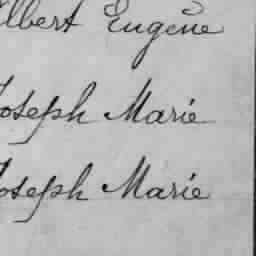 Albert Eugène
Joseph Marie
Joseph Marie